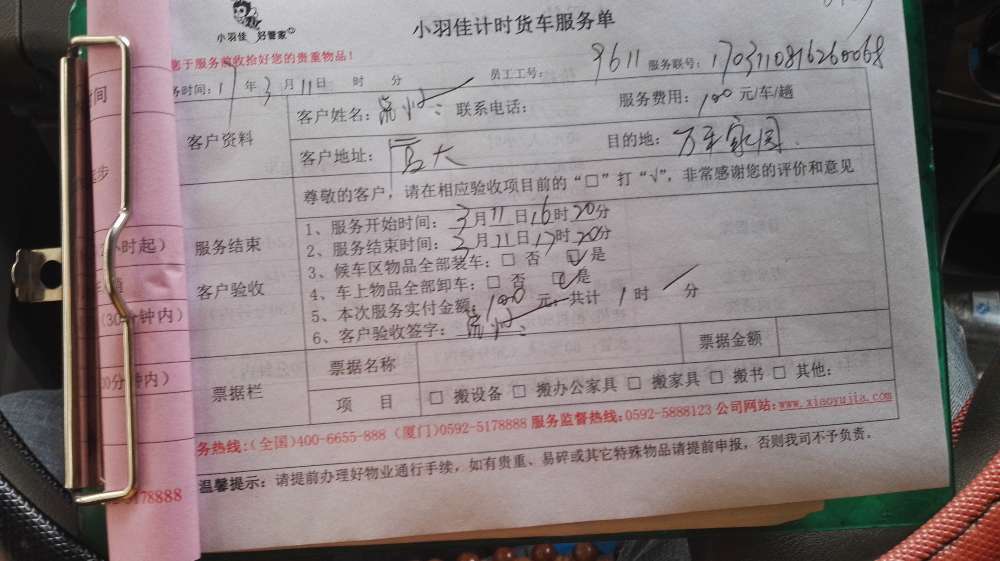 小羽佳 好管家
小羽佳计时货车服务单
您于服务前收拾好您的贵重物品!
务时间: 17 年 3 月 11 日 时 分 员工工号: 9611 服务联号: 1703110816260068
客户资料
客户姓名: 联系电话: 服务费用: 100 元/车/趟
客户地址: 厦大 目的地: 万丰家园
尊敬的客户, 请在相应验收项目前的“□”打“√”, 非常感谢您的评价和意见
服务结束
客户验收
1、服务开始时间: 3月11日16时20分
2、服务结束时间: 3月11日17时20分
3、候车区物品全部装车: □ 否 ☑ 是
4、车上物品全部卸车: □ 否 ☑ 是
5、本次服务实付金额: 100 元, 共计 1 时 分
6、客户验收签字:
票据栏
票据名称 票据金额
项 目 □ 搬设备 □ 搬办公家具 □ 搬家具 □ 搬书 □ 其他:
务热线:(全国)400-6655-888 (厦门)0592-5178888 服务监督热线:0592-5888123 公司网站:www.xiaoyujia.com
温馨提示: 请提前办理好物业通行手续, 如有贵重、易碎或其它特殊物品请提前申报, 否则我司不予负责。
间
步
小时起)
(30分钟内)
0分钟内)
178888